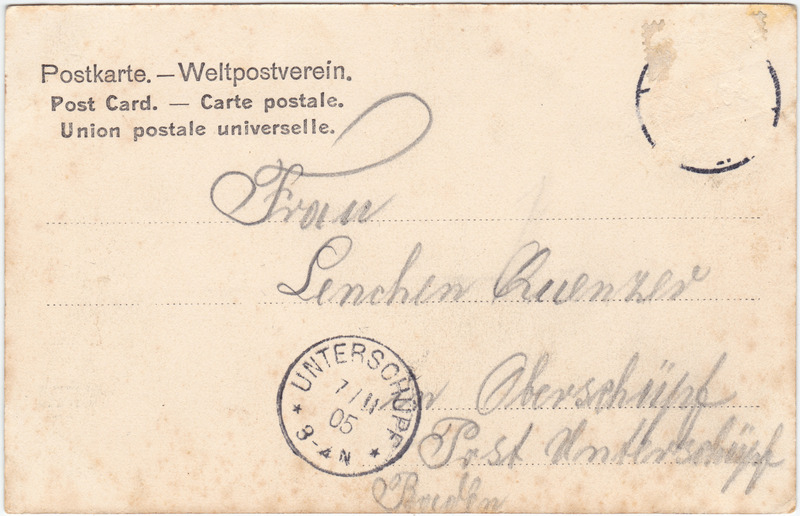 Postkarte. — Weltpostverein.
Post Card. — Carte postale.
Union postale universelle.
Frau
Lenchen Quenzer
in Oberschüpf
UNTERSCHÜPF
05
3-4N
Post Unterschüpf
Baden